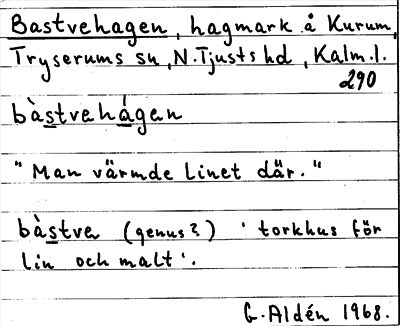 Bastvehagen, hagmark å Kurum,
Tryserums sn, N. Tjusts hd, Kalm. l.
290
bàstvehágen
"Man värmde linet där."
bàstve (genus?) 'torkhus för
lin och malt'.
G. Aldén 1968.